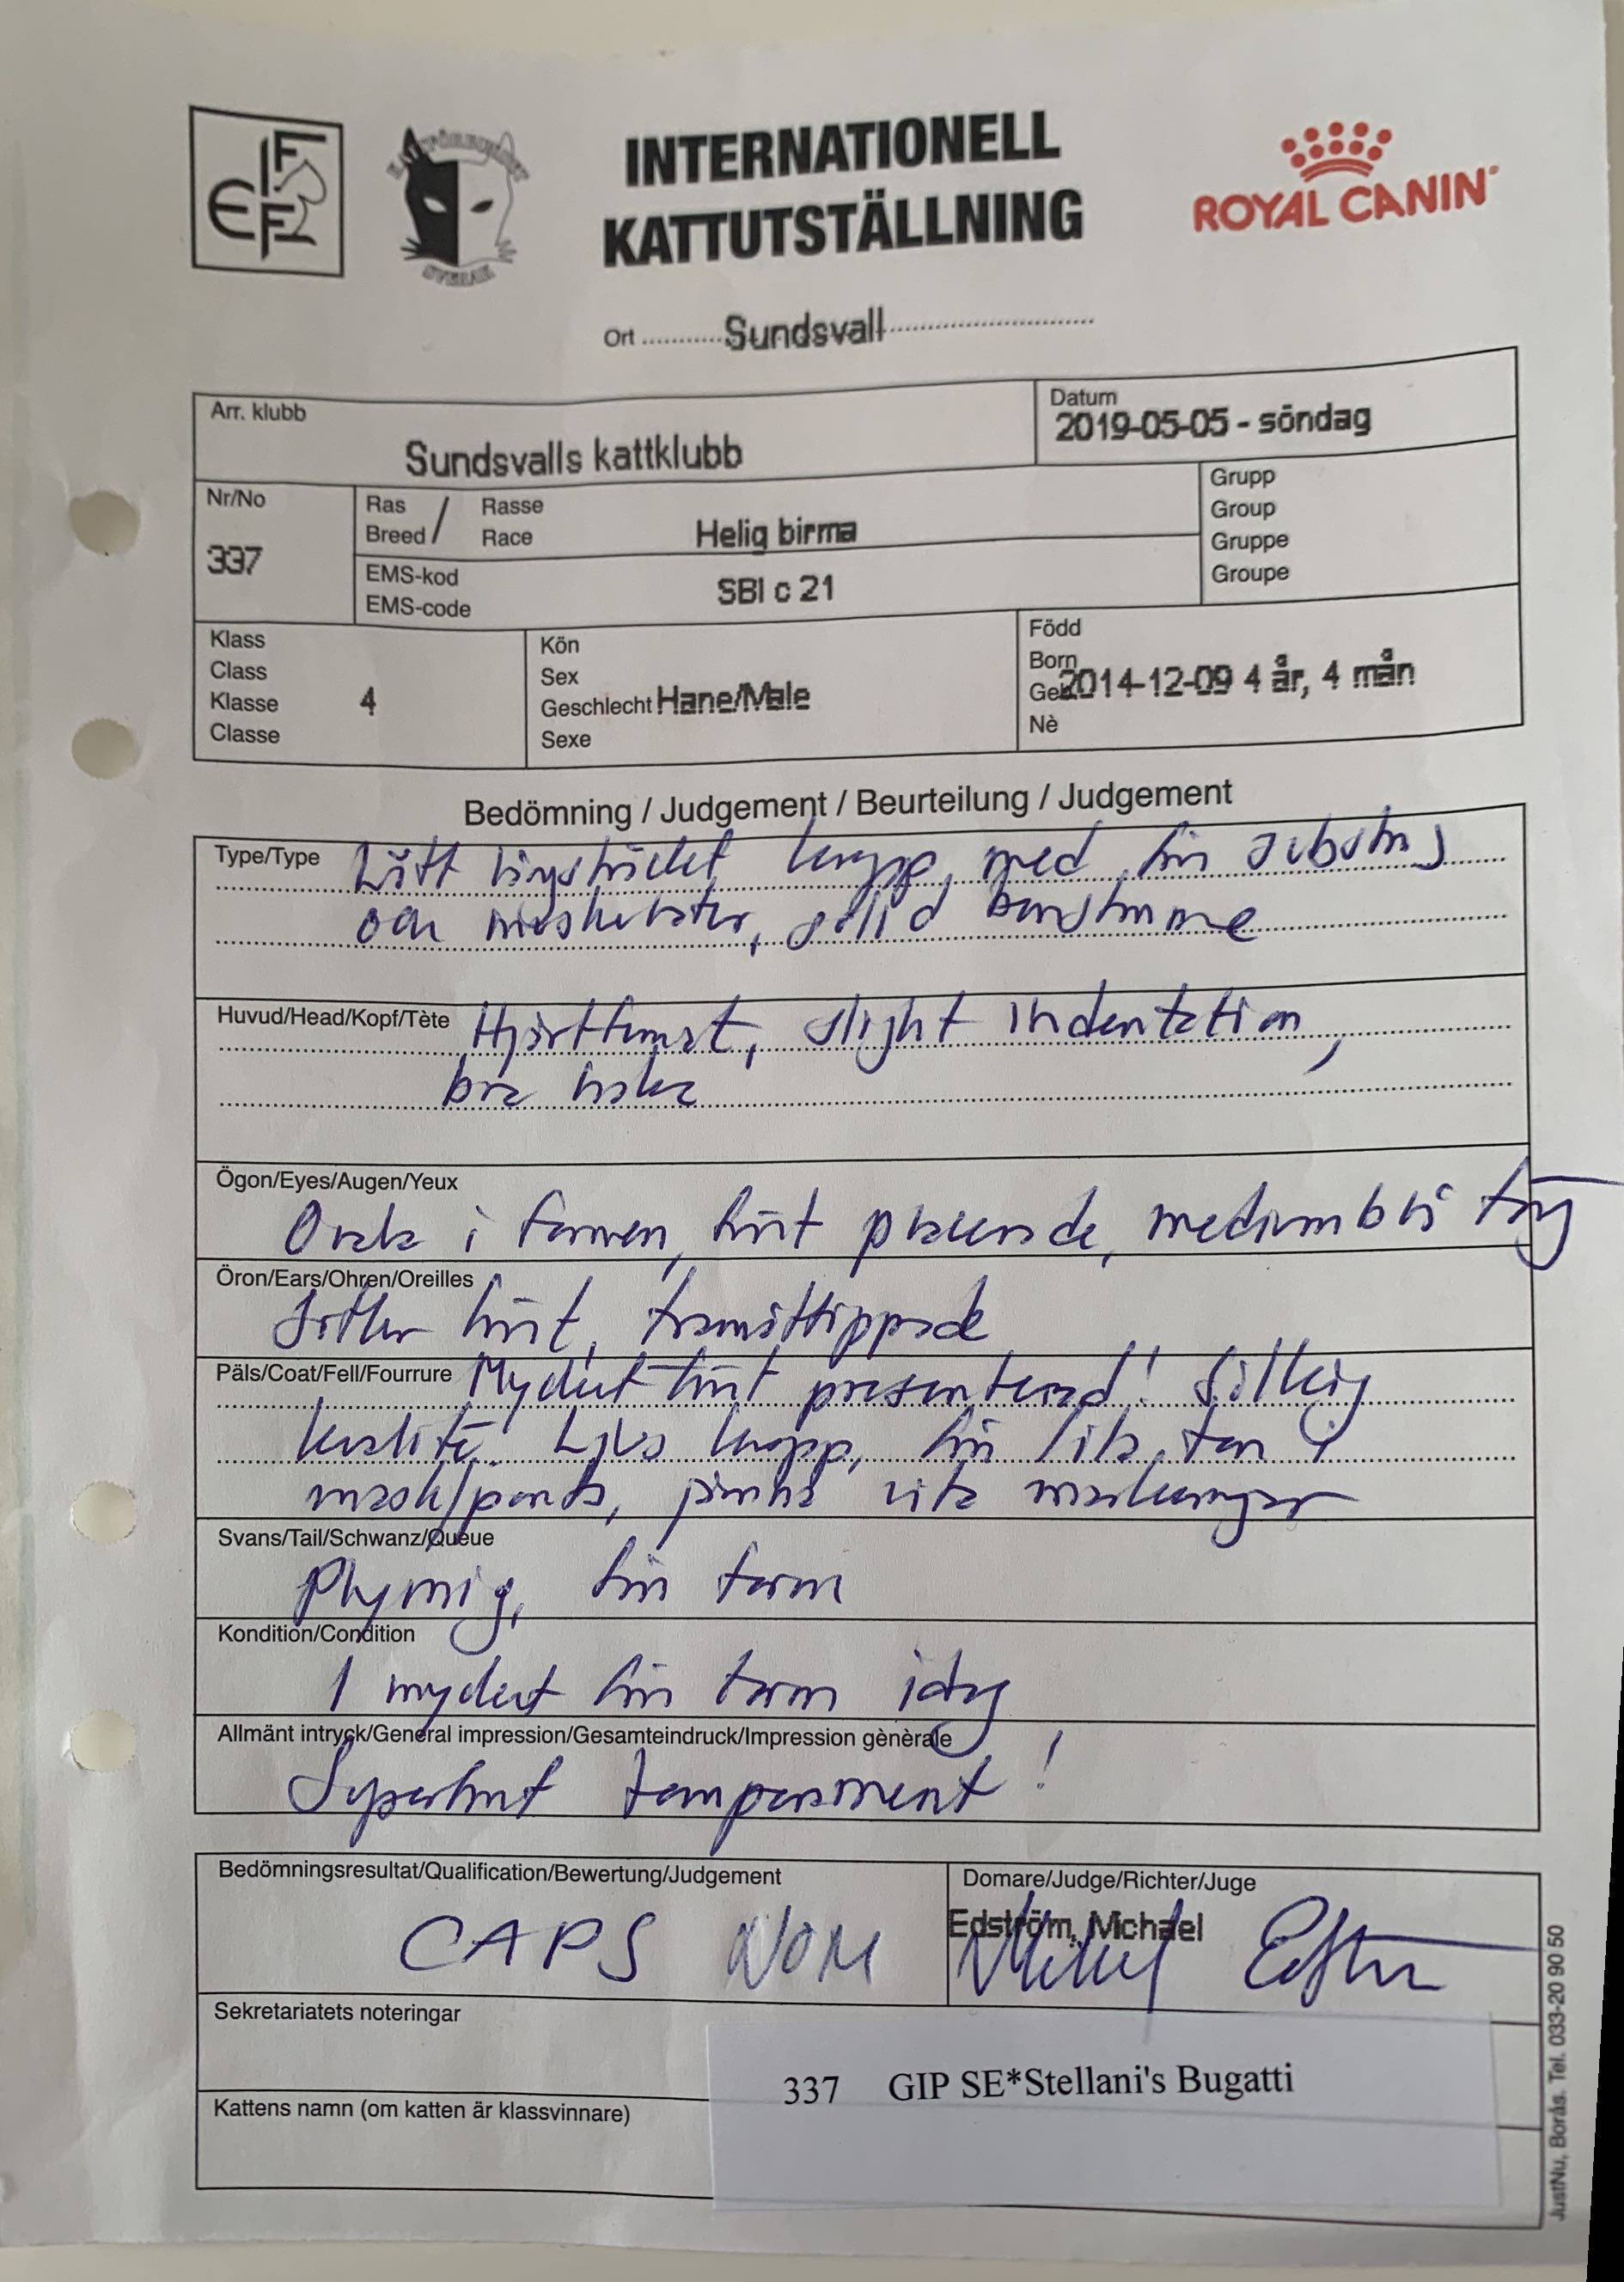 FIFe
KATTFÖRBUNDET
SVERAK
INTERNATIONELL
KATTUTSTÄLLNING
ROYAL CANIN
Ort Sundsvall
Arr. klubb
Sundsvalls kattklubb
Datum
2019-05-05 - söndag
Nr/No
337
Ras / Rasse
Breed / Race
Helig birma
EMS-kod
EMS-code
SBI c 21
Grupp
Group
Gruppe
Groupe
Klass
Class
Klasse
Classe
4
Kön
Sex
Geschlecht Hane/Male
Sexe
Född
Born
Geb. 2014-12-09 4 år, 4 mån
Nè
Bedömning / Judgement / Beurteilung / Judgement
Type/Type Lätt långsträckt kropp, med fin substans
och muskulatur, solid benstomme
Huvud/Head/Kopf/Tète Hjärtformat, slight indentation,
bra haka
Ögon/Eyes/Augen/Yeux
Ovala i formen, fint placerade, mediumblå färg
Öron/Ears/Ohren/Oreilles
Sitter fint, framåttippade
Päls/Coat/Fell/Fourrure Mycket fint presenterad! Silkig
kvalité. Ljus kropp, fin lila ton i
mask/points, jämna vita markeringar
Svans/Tail/Schwanz/Queue
Plymig, fin form
Kondition/Condition
I mycket fin form idag
Allmänt intryck/General impression/Gesamteindruck/Impression gènèrale
Superfint temperament!
Bedömningsresultat/Qualification/Bewertung/Judgement
CAPS NOM
Domare/Judge/Richter/Juge
Edström, Michael
Sekretariatets noteringar
337 GIP SE*Stellani's Bugatti
Kattens namn (om katten är klassvinnare)
JustNu, Borås. Tel. 033-20 90 50